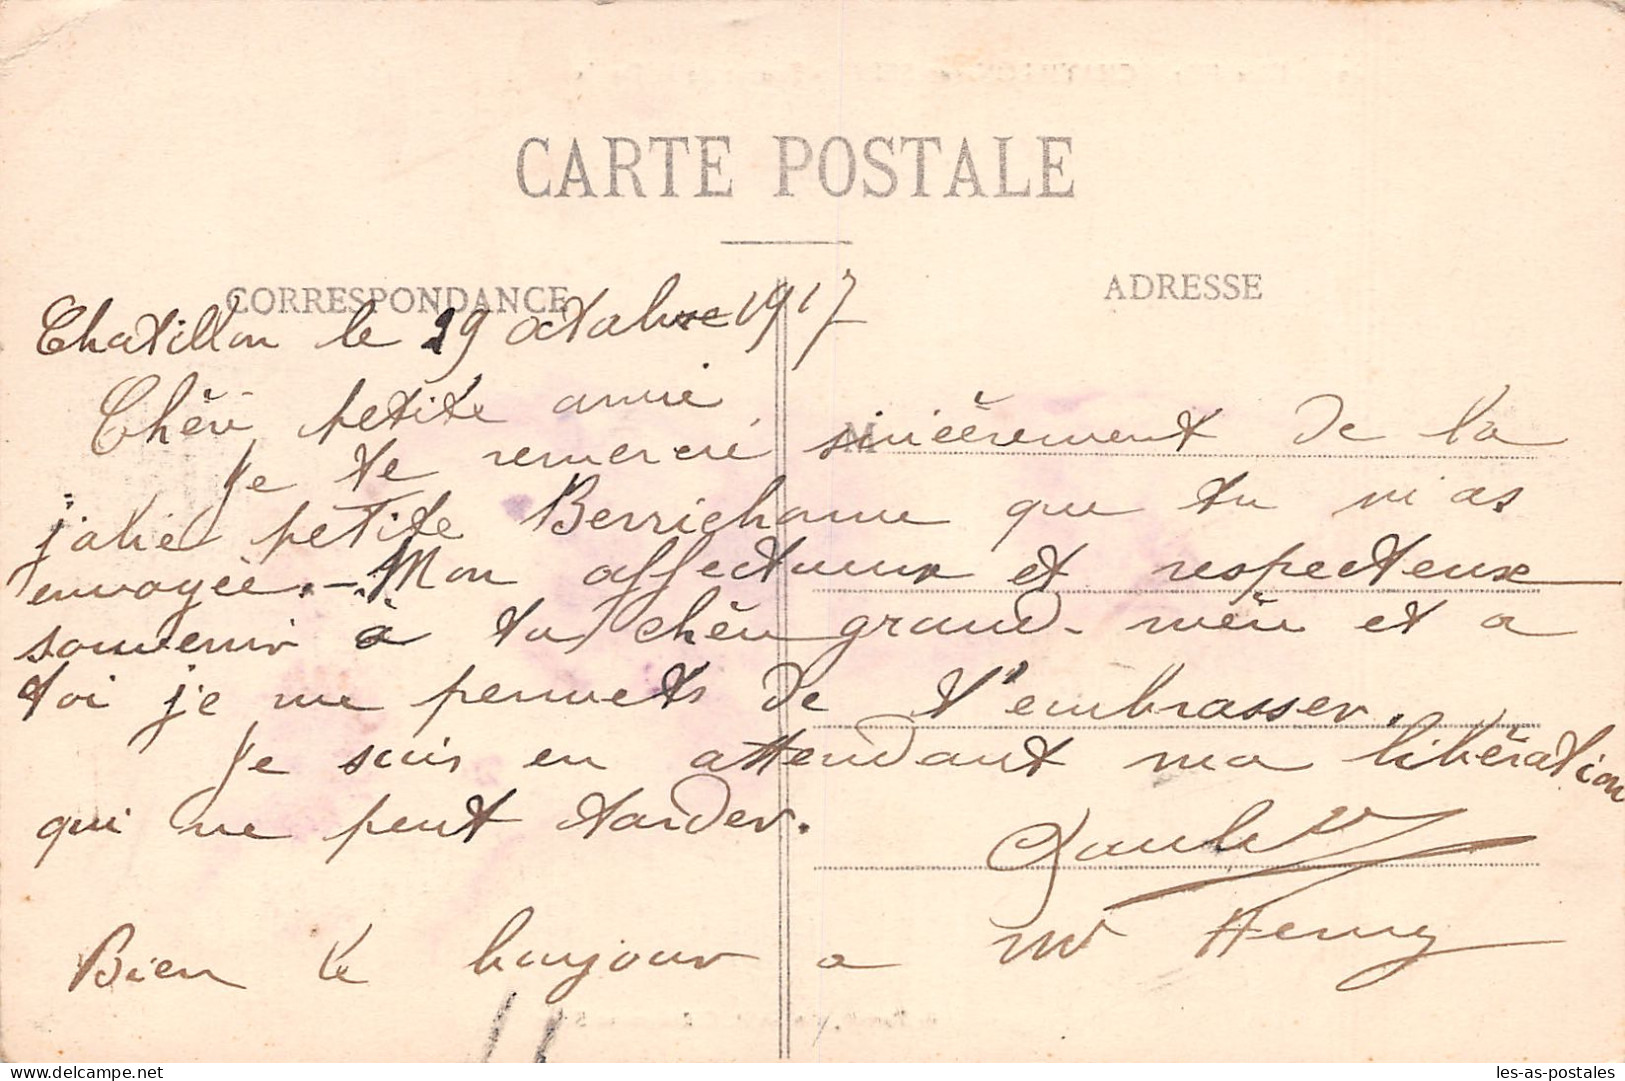 CARTE POSTALE
CORRESPONDANCE
ADRESSE
Chatillon le 29 octobre 1917
Chère petite amie
Je te remercie sincèrement de la
jolie petite Berrichonne que tu m'as
envoyée. - Mon affectueux et respecteuse
souvenir à ta chère grand-mère et a
toi je me permets de t'embrasser.
Je suis en attendant ma libération
qui ne peut tarder.
Bien le bonjour a Mr Henry
les-as-postales